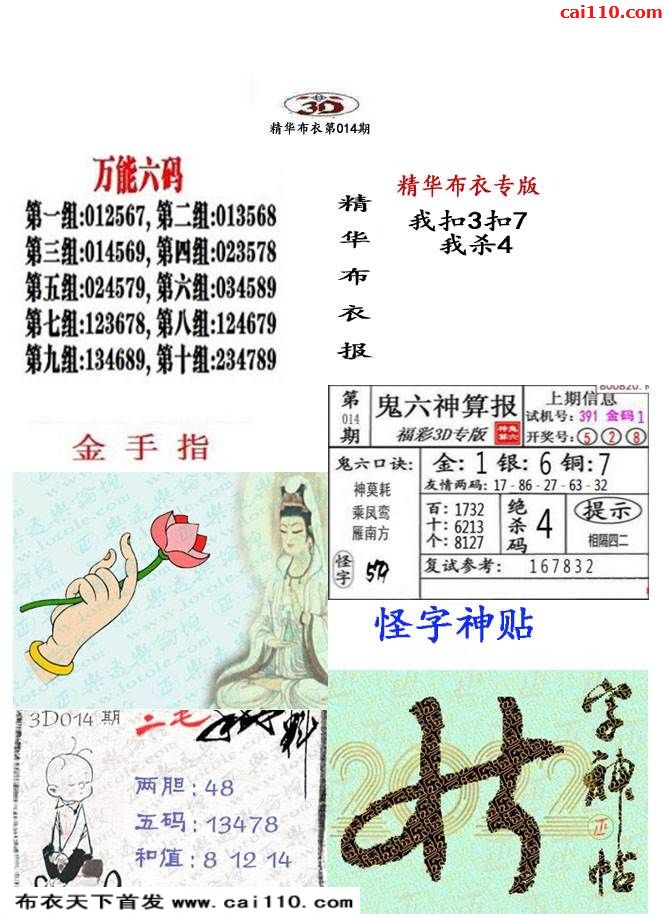 cai110.com
3D
精华布衣第014期
万能六码
第一组:012567, 第二组:013568
第三组:014569, 第四组:023578
第五组:024579, 第六组:034589
第七组:123678, 第八组:124679
第九组:134689, 第十组:234789
精华布衣报
精华布衣专版
我扣3扣7
我杀4
金手指
第014期
鬼六神算报
福彩3D专版
上期信息
试机号: 391 金码 1
开奖号: 5 2 8
鬼六口诀:
神莫耗
乘凤鸾
雁南方
怪字
金: 1 银: 6 铜: 7
友情两码: 17-86-27-63-32
百: 1732
十: 6213
个: 8127
绝杀码 4
提示
相隔四二
复试参考: 167832
怪字神贴
3D014 期
两胆 : 48
五码 : 13478
和值 : 8 12 14
字神帖
布衣天下首发 www.cai110.com